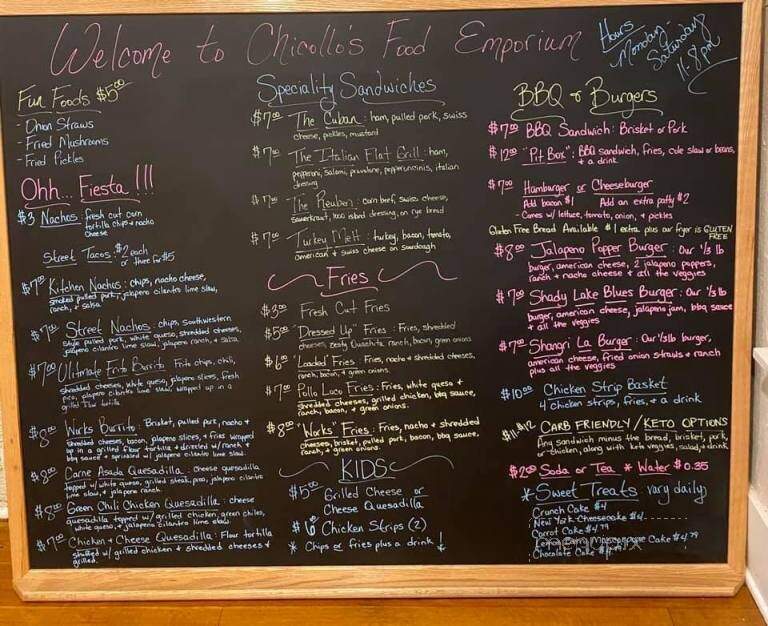 Welcome to Chicollo's Food Emporium
Hours
Monday-
Saturday
11-8pm
Fun Foods $5.00
- Onion Straws
- Fried Mushrooms
- Fried Pickles
Ohh... Fiesta !!!
$3 Nachos: fresh cut corn
tortilla chips + nacho
cheese
Street Tacos: $2 each
or three for $5
$7.00 Kitchen Nachos: chips, nacho cheese,
smoked pulled pork, jalapeno cilantro lime slaw,
ranch, + salsa
$7.00 Street Nachos: chips, southwestern
style pulled pork, white queso, shredded cheeses,
jalapeno cilantro lime slaw, jalapeno ranch, + salsa
$7.00 Ultimate Frito Burrito: Frito chips, chili,
shredded cheeses, white queso, jalapeno slices, fresh
pico, jalapeno cilantro lime slaw, wrapped up in a
grilled flour tortilla
$8.00 Works Burrito: Brisket, pulled pork, nacho +
shredded cheeses, bacon, jalapeno slices, + fries wrapped
up in a grilled flour tortilla + drizzled w/ ranch +
bbq sauce + sprinkled w/ jalapeno cilantro lime slaw.
$8.00 Carne Asada Quesadilla: cheese quesadilla
topped w/ white queso, grilled steak, pico, jalapeno cilantro
lime slaw, + jalapeno ranch.
$8.00 Green Chili Chicken Quesadilla: cheese
quesadilla topped w/ grilled chicken, green chiles,
white queso, + jalapeno cilantro lime slaw.
$7.00 Chicken + Cheese Quesadilla: Flour tortilla
stuffed w/ grilled chicken + shredded cheeses +
grilled.
Speciality Sandwiches
$7.00 The Cuban: ham, pulled pork, swiss
cheese, pickles, mustard
$7.00 The Italian Flat Grill: ham,
pepperoni, salami, provolone, pepperoncinis, italian
dressing
$7.00 The Reuben: corn beef, swiss cheese,
sauerkraut, 1000 island dressing, on rye bread
$7.00 Turkey Melt: turkey, bacon, tomato,
american + swiss cheese on sourdough
Fries
$3.00 Fresh Cut Fries
$5.00 "Dressed Up" Fries: Fries, shredded
cheeses, zesty Ouachita ranch, bacon, green onions
$6.00 "Loaded" Fries: Fries, nacho + shredded cheeses,
ranch, bacon, + green onions.
$7.00 Pollo Loco Fries: Fries, white queso +
shredded cheeses, grilled chicken, bbq sauce,
ranch, bacon, + green onions.
$8.00 "Works" Fries: Fries, nacho + shredded
cheeses, brisket, pulled pork, bacon, bbq sauce,
ranch, + green onions.
KIDS
$5.00 Grilled Cheese or
Cheese Quesadilla
$6 Chicken Strips (2)
* Chips or fries plus a drink!
BBQ + Burgers
$7.00 BBQ Sandwich: Brisket or Pork
$12.00 "Pit Box": BBQ sandwich, fries, cole slaw or beans,
+ a drink.
$7.00 Hamburger or Cheeseburger
Add bacon $1 Add an extra patty $2
- Comes w/ lettuce, tomato, onion, + pickles
Gluten Free Bread Available $1 extra plus our fryer is GLUTEN
FREE
$8.00 Jalapeno Popper Burger: Our 1/3 lb
burger, american cheese, 2 jalapeno poppers,
ranch + nacho cheese + all the veggies
$7.00 Shady Lake Blues Burger: Our 1/3 lb
burger, american cheese, jalapeno jam, bbq sauce
+ all the veggies
$7.00 Shangri La Burger: Our 1/3 lb burger,
american cheese, fried onion straws + ranch
plus all the veggies
$10.00 Chicken Strip Basket
4 chicken strips, fries, + a drink
$11-$12 CARB FRIENDLY/KETO OPTIONS
Any sandwich minus the bread, brisket, pork,
or chicken, along with keto veggies, salad, + drink
$2.00 Soda or Tea * Water $0.35
*Sweet Treats vary daily
Crunch Cake $4
New York Cheesecake $4
Carrot Cake $4.79
Lemon Berry Mascarpone Cake $4.79
Chocolate Cake